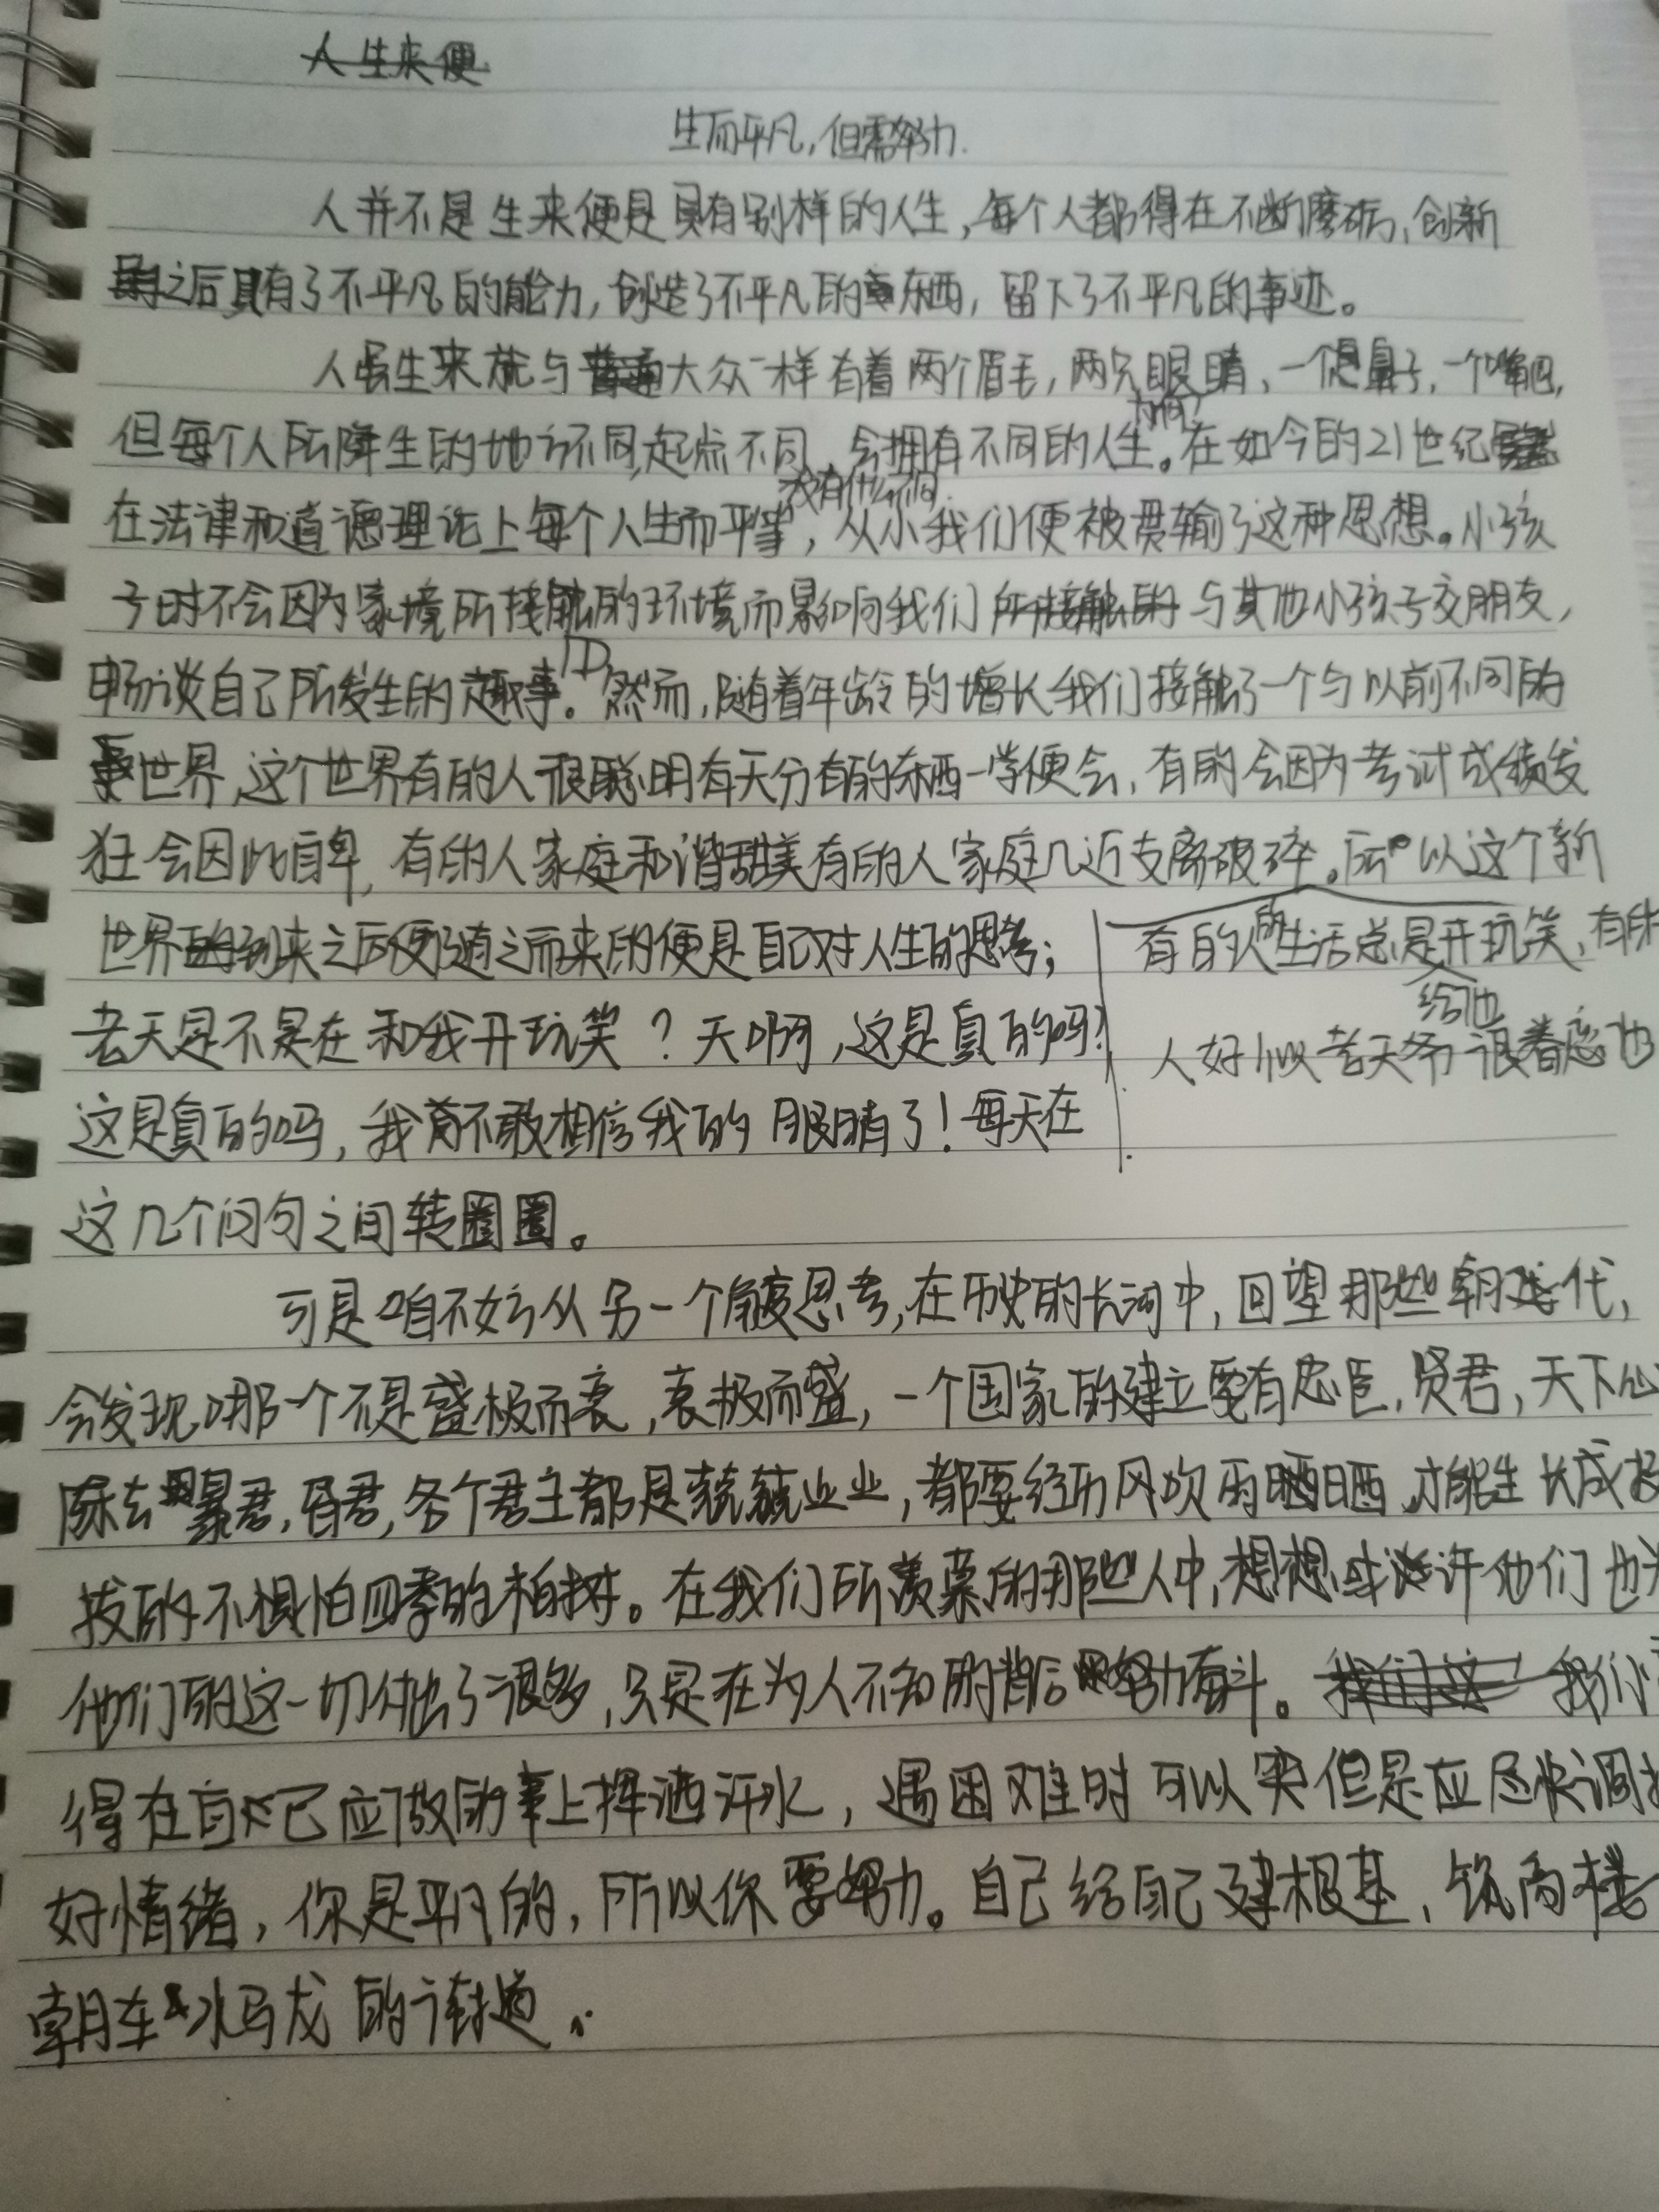 人生来便
生而平凡,但需努力.
人并不是生来便是具有别样的人生,每个人都得在不断磨砺、创新
之后具有了不平凡的能力,创造了不平凡的东西,留下了不平凡的事迹。
人虽生来就与普通大众一样有着两个眉毛,两只眼睛、一个鼻子,一个嘴巴,
为何?
但每个人所降生的地方不同,起点不同,会拥有不同的人生。在如今的21世纪
没有什么不同.
在法律和道德理论上每个人生而平等,从小我们便被贯输了这种思想。小孩
子时不会因为家境所接触的环境而影响我们所接触的与其他小孩子交朋友,
畅谈自己所发生的趣事。然而,随着年龄的增长我们接触了一个与以前不同的
世界,这个世界有的人很聪明有天分有的东西一学便会,有的会因为考试成绩发
狂会因此自卑,有的人家庭和谐甜美有的人家庭几近支离破碎。所以这个新
世界的到来之后便随之而来的便是自己对人生的思考;
老天是不是在和我开玩笑?天啊,这是真的吗?
这是真的吗,我简不敢相信我的眼睛了!每天在
有的人的生活总是开玩笑,有的
给他
人好似老天爷很眷恋他
这几个问句之间转圈圈。
可是咱不妨从另一个角度思考,在历史的长河中,回望那些朝代,
会发现哪一个不是盛极而衰,衰极而盛,一个国家的建立要有忠臣,贤君,天下心
除去暴君,昏君,各个君主都是兢兢业业,都要经历风吹雨晒日晒,才能生长成挺
拔的不惧怕四季的柏树。在我们所羡慕的那些人中,想想或许他们也为
他们的这一切付出了很多,只是在为人不知的背后努力奋斗。我们这 我们
得在自己应做的事上挥洒汗水,遇困难时可以哭但是应尽快调
好情绪,你是平凡的,所以你要努力。自己给自己建根基,筑高楼
朝车水马龙的街道。